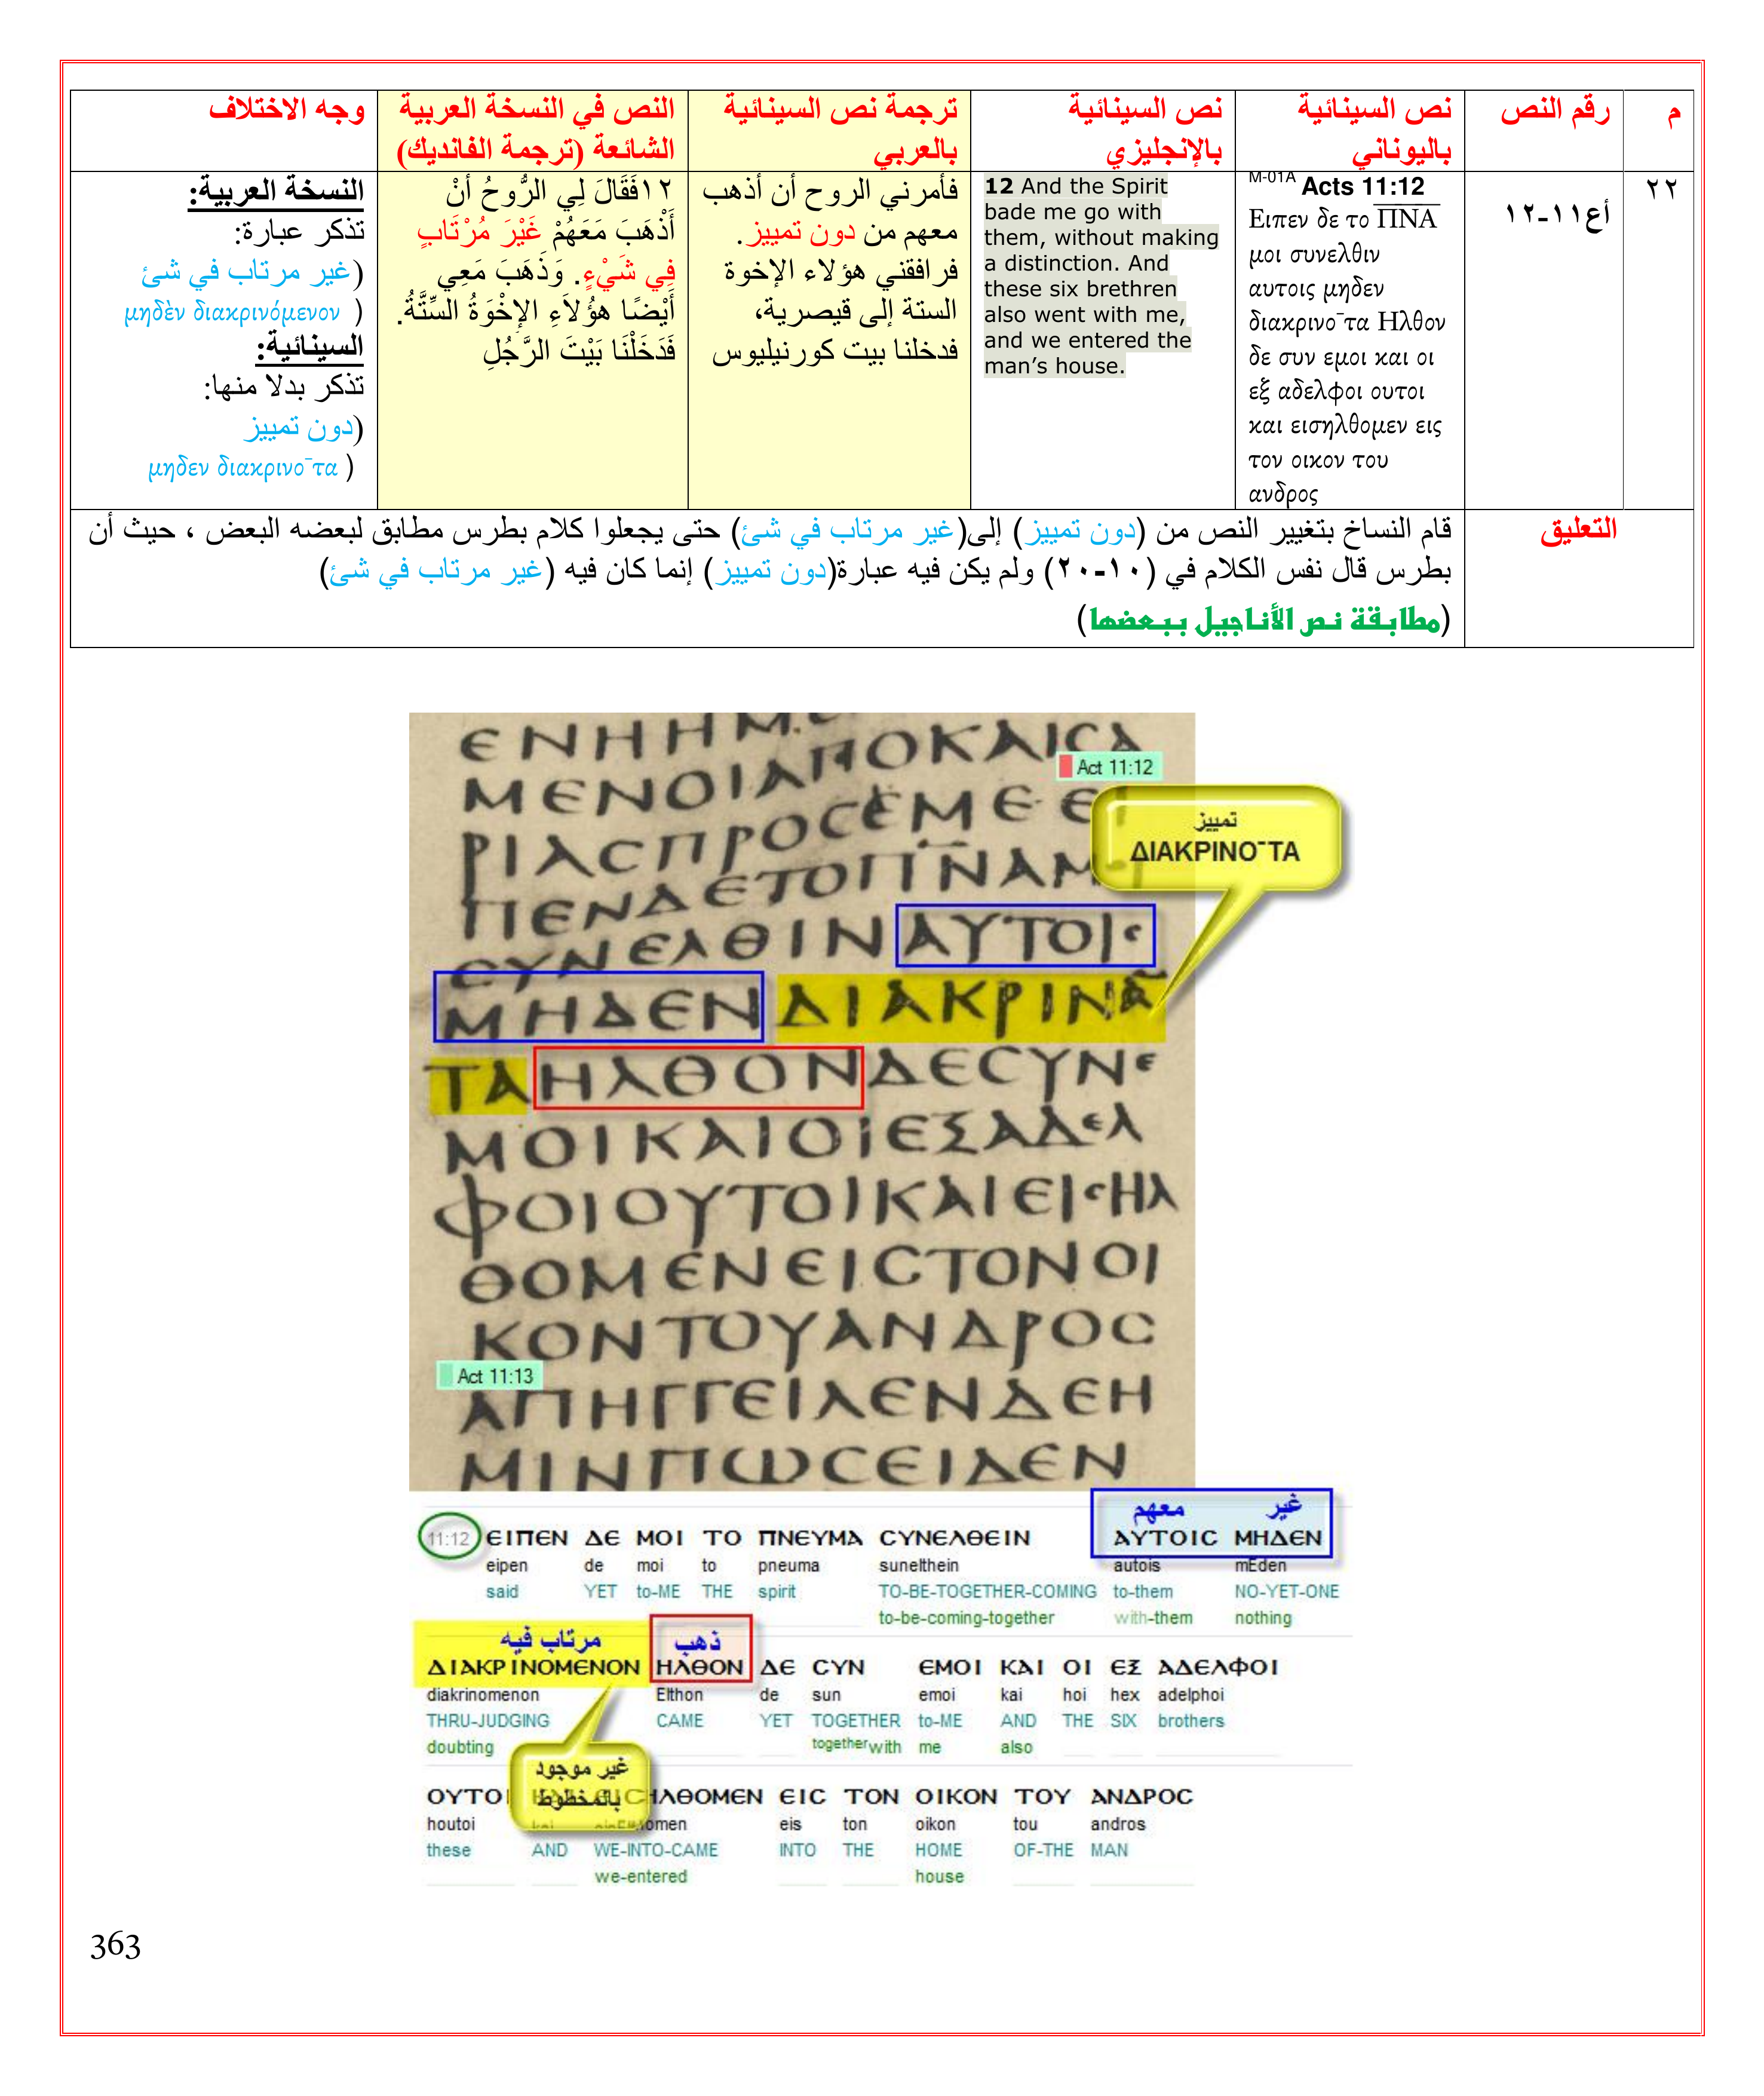 م
رقم النص
نص السينائية
باليوناني
نص السينائية
بالإنجليزي
ترجمة نص السينائية
بالعربي
النص في النسخة العربية
الشائعة (ترجمة الفانديك)
وجه الاختلاف
٢٢
أع١١-١٢
M-01A Acts 11:12
Ειπεν δε το ΠΝΑ
μοι συνελθιν
αυτοις μηδεν
διακρινο¯τα Ηλθον
δε συν εμοι και οι
εξ αδελφοι ουτοι
και εισηλθομεν εις
τον οικον του
ανδρος
12 And the Spirit
bade me go with
them, without making
a distinction. And
these six brethren
also went with me,
and we entered the
man’s house.
فأمرني الروح أن أذهب
معهم من دون تمييز.
فرافقني هؤلاء الإخوة
الستة إلى قيصرية،
فدخلنا بيت كورنيليوس
١٢فَقَالَ لِي الرُّوحُ أَنْ
أَذْهَبَ مَعَهُمْ غَيْرَ مُرْتَابٍ
فِي شَيْءٍ. وَذَهَبَ مَعِي
أَيْضًا هؤُلاَءِ الإِخْوَةُ السِّتَّةُ.
فَدَخَلْنَا بَيْتَ الرَّجُلِ
النسخة العربية:
تذكر عبارة:
(غير مرتاب في شئ
μηδὲν διακρινόμενον )
السينائية:
تذكر بدلا منها:
(دون تمييز
μηδεν διακρινο¯τα )
التعليق
قام النساخ بتغيير النص من (دون تمييز) إلى(غير مرتاب في شئ) حتى يجعلوا كلام بطرس مطابق لبعضه البعض ، حيث أن
بطرس قال نفس الكلام في (١٠-٢٠) ولم يكن فيه عبارة(دون تمييز) إنما كان فيه (غير مرتاب في شئ)
(مطابقة نص الأناجيل ببعضها)
ΜΕΝΟΙΑΠΟΚΑΙCΑ
Act 11:12
ΡΙΑCΠΡΟCΕΜΕΕΙ
ΠΕΝΔΕΤΟΠΝΑΜ
تمييز
ΔΙΑΚΡΙΝΟ¯ΤΑ
CΥΝΕΛΘΙΝΑΥΤΟΙC
ΜΗΔΕΝΔΙΑΚΡΙΝΑ̅
ΤΑΗΛΘΟΝΔΕCΥΝΕ
ΜΟΙΚΑΙΟΙΕΞΑΔΕΛ
ΦΟΙΟΥΤΟΙΚΑΙΕΙCΗΛ
ΘΟΜΕΝΕΙCΤΟΝΟΙ
ΚΟΝΤΟΥΑΝΔΡΟC
Act 11:13
ΑΠΗΓΓΕΙΛΕΝΔΕΗ
ΜΙΝΠΩCΕΙΔΕΝ
معهم غير
11:12 ΕΙΠΕΝ ΔΕ ΜΟΙ ΤΟ ΠΝΕΥΜΑ CΥΝΕΛΘΕΙΝ ΑΥΤΟΙC ΜΗΔΕΝ
eipen de moi to pneuma sunelthein autois mEden
said YET to-ME THE spirit TO-BE-TOGETHER-COMING to-them NO-YET-ONE
to-be-coming-together with-them nothing
مرتاب فيه ذهب
ΔΙΑΚΡΙΝΟΜΕΝΟΝ ΗΛΘΟΝ ΔΕ CΥΝ ΕΜΟΙ ΚΑΙ ΟΙ ΕΞ ΑΔΕΛΦΟΙ
diakrinomenon Elthon de sun emoi kai hoi hex adelphoi
THRU-JUDGING CAME YET TOGETHER to-ME AND THE SIX brothers
doubting togetherwith me also
غير موجود
بالمخطوط
ΟΥΤΟΙ ΗΛΘΟΜΕΝ ΕΙC ΤΟΝ ΟΙΚΟΝ ΤΟΥ ΑΝΔΡΟC
houtoi eis ton oikon tou andros
these AND WE-INTO-CAME INTO THE HOME OF-THE MAN
we-entered house
363